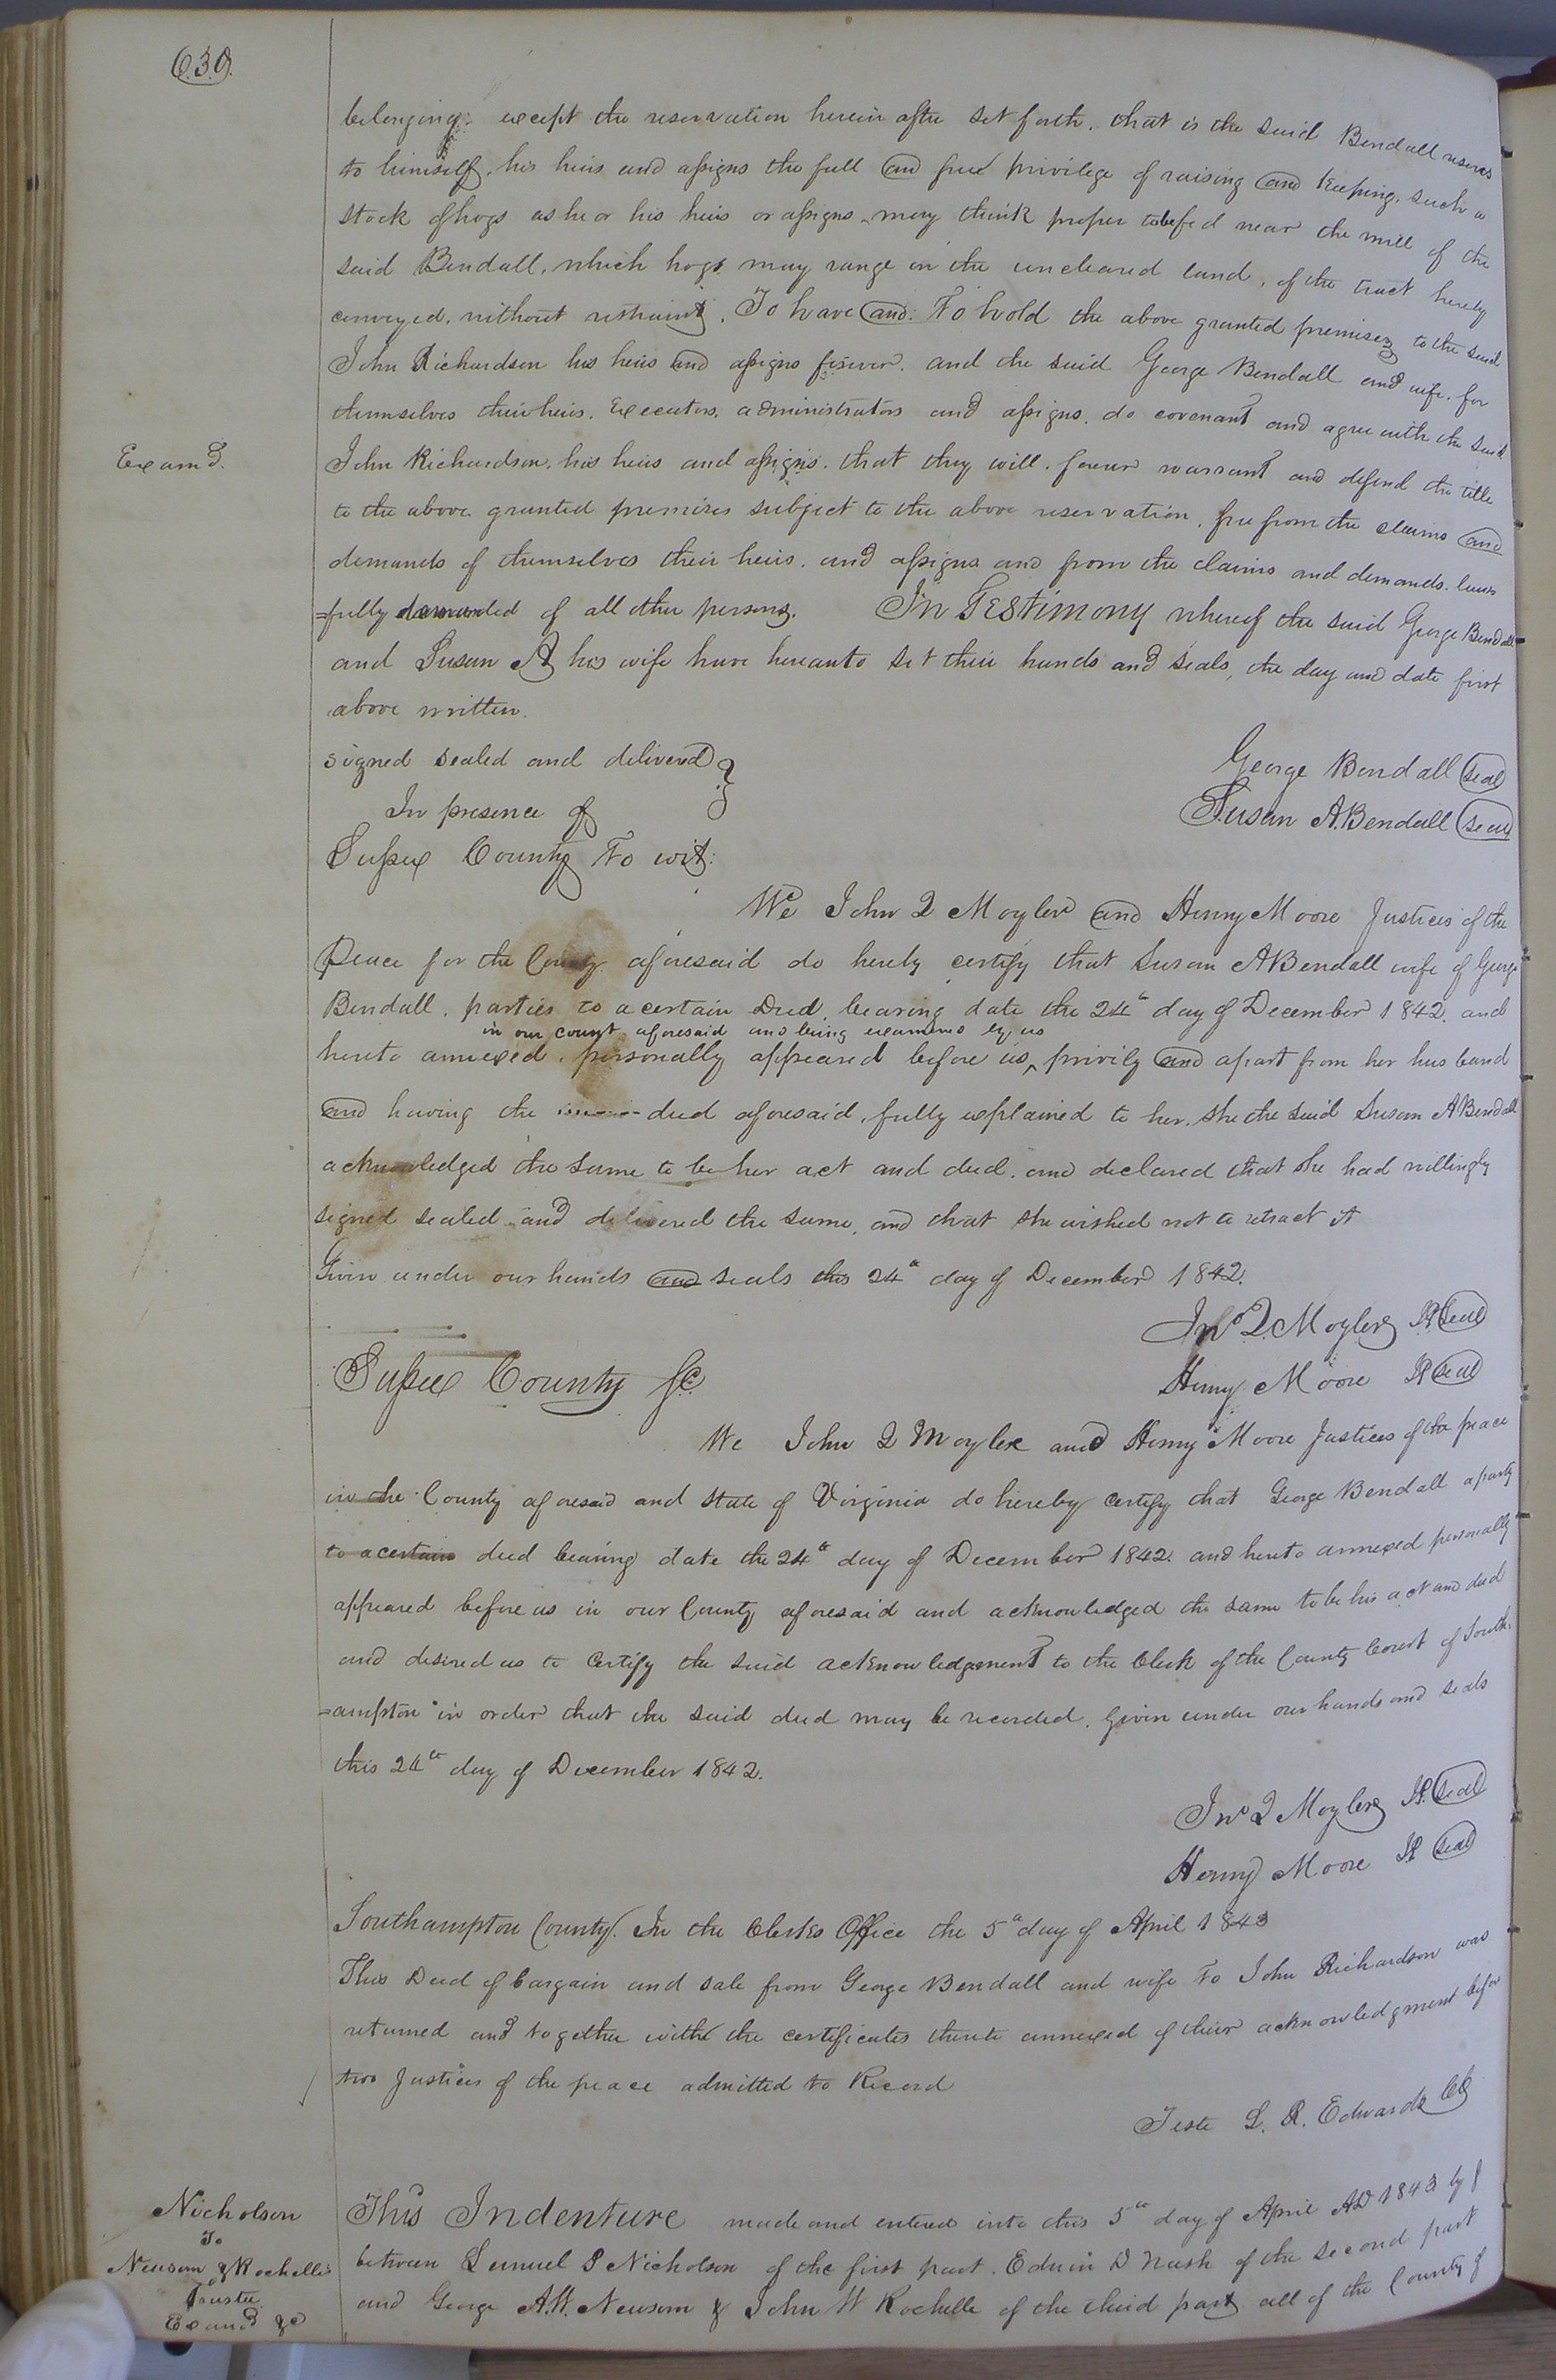 630.
belonging. except the reservation herein after set forth. that is the said Bendall reserves
to himself, his heirs and assigns the full and free privilege of raising and Keeping. such a
stock of hogs as he or his heirs or assigns may think proper to be fed near the mill of the
said Bendall, which hogs may range in the uncleared land, of the tract hereby
conveyed, without restraint. To have and: To hold the above granted premises to the said
John Richardson his heirs and assigns forever. and the said George Bendall and wife. for
themselves their heirs. Executors, administrators and assigns. do covenant and agree with the said
Examd.
John Richardson, his heirs and assigns. that they will. forever warrant and defend the title
to the above granted premises subject to the above reservation, free from the claims and
demands of themselves their heirs. and assigns and from the claims and demands. law
=fully demanded of all other persons. In Testimony whereof the said George Bendall
and Susan A his wife have hereunto set their hands and seals, the day and date first
above written.
signed sealed and delivered }
In presence of
George Bendall seal
Susan A. Bendall seal
Sussex County To wit:
We John Q Moyler and Henry Moore Justices of the
Peace for the County aforesaid do hereby certify that Susan A Bendall wife of George
Bendall, parties to a certain Deed, bearing date the 24th day of December 1842. and
in our county aforesaid and being examined by us
hereto annexed, personally appeared before us ^ privily and apart from her husband
and having the deed aforesaid, fully explained to her. she the said Susan A Bendall
acknowledged the same to be her act and deed. and declared that she had willingly
signed sealed and delivered the same, and that she wished not to retract it
Given under our hands and seals this 24th day of December 1842.
Jno Q. Moyler JP Seal
Henry Moore JP seal
Sussex County Sc.
We John Q Moyler and Henry Moore Justices of the peace
in the County aforesaid and state of Virginia do hereby certify that George Bendall a party
to a certain deed bearing date the 24th day of December 1842. and hereto annexed personally
appeared before us in our County aforesaid and acknowledged the same to be his act and deed
and desired us to Certify the said acknowledgement to the Clerk of the County Court of South-
=ampton in order that the said deed may be recorded. Given under our hands and seals
this 24th day of December 1842.
Jno Q Moyler JP. seal
Henry Moore JP seal
Southampton County. In the Clerk's Office the 5th day of April 1843
This Deed of bargain and sale from George Bendall and wife To John Richardson was
returned and together with the certificates thereto annexed of their acknowledgment before
two Justices of the peace admitted to Record
Teste L. R. Edwards CC
Nicholson
To
Newsom & Rochelle's
Trustee
Examd &c
This Indenture made and entered into this 5th day of April AD 1843 by &
between Lemuel P Nicholson of the first part. Edwin D Nash of the second part
and George A.W. Newsom & John W Rochelle of the third part all of the County of